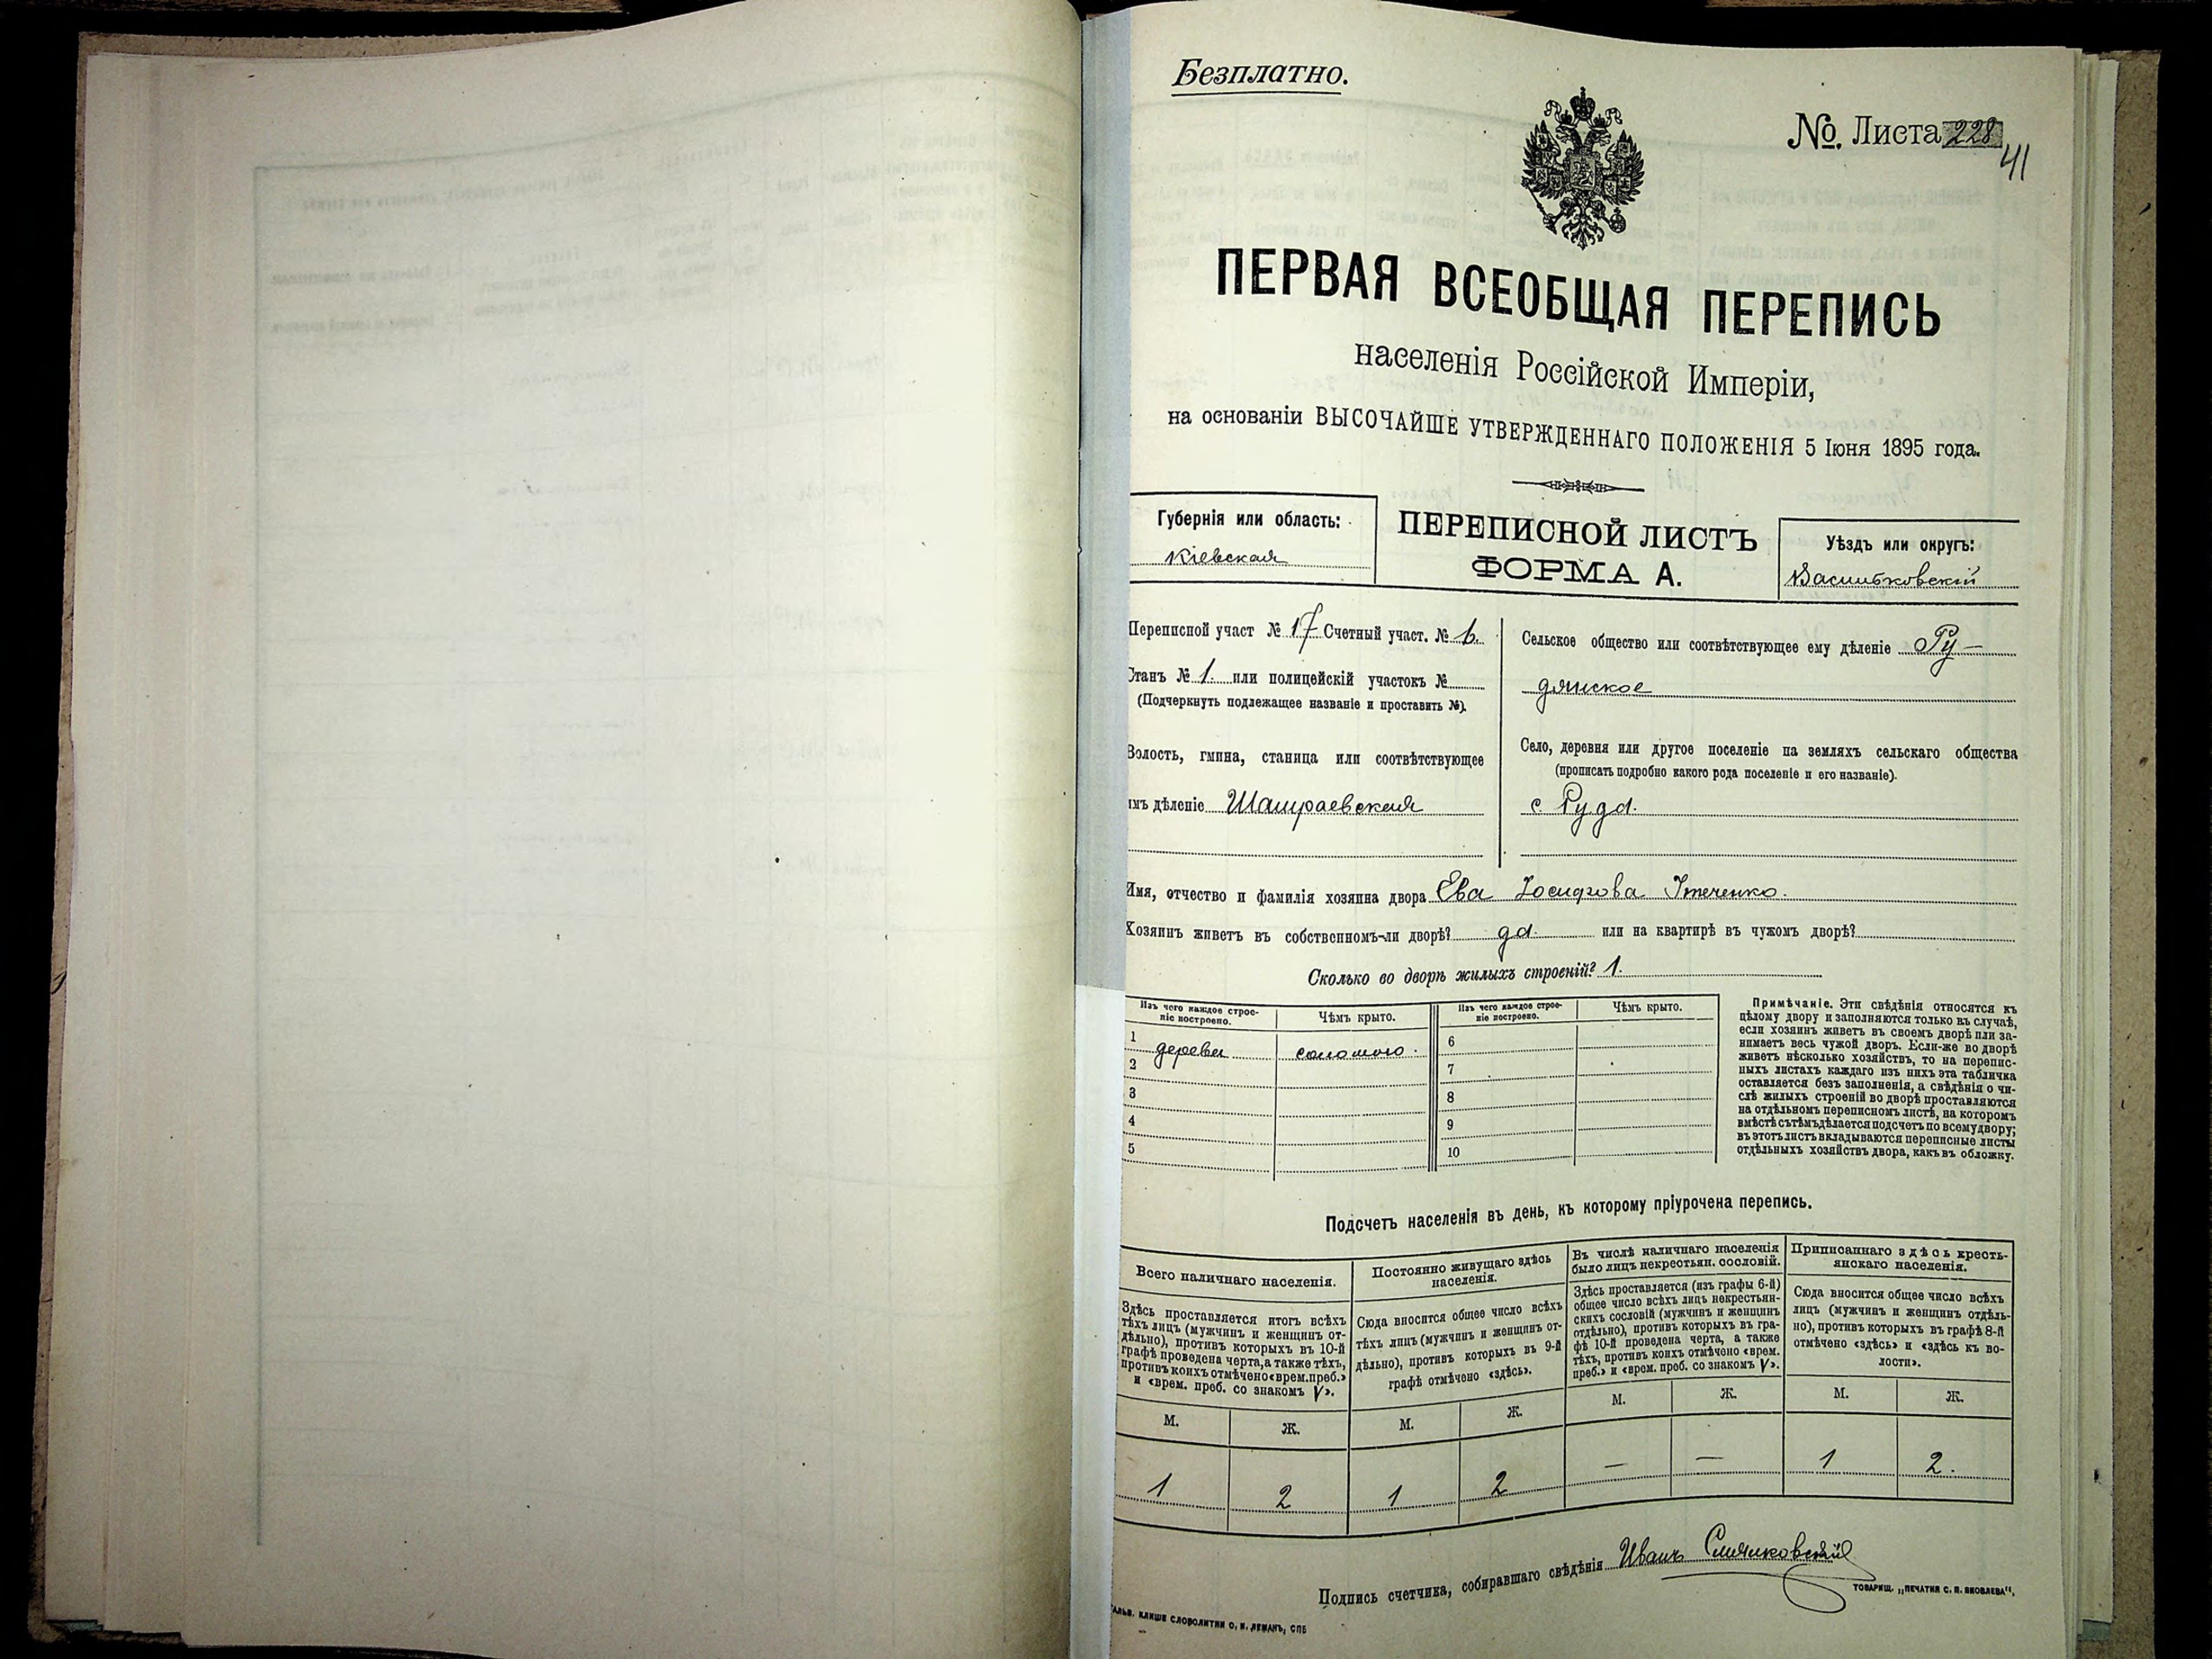 Безплатно.
№. Листа 228
41
ПЕРВАЯ ВСЕОБЩАЯ ПЕРЕПИСЬ
населенія Россійской Имперіи,
на основаніи ВЫСОЧАЙШЕ УТВЕРЖДЕННАГО ПОЛОЖЕНІЯ 5 Іюня 1895 года.
Губернія или область:
Кіевская
ПЕРЕПИСНОЙ ЛИСТЪ
ФОРМА А.
Уѣздъ или округъ:
Васильковскій
Переписной участ № 17 Счетный участ. № 6.
Станъ № 1. или полицейскій участокъ №
(Подчеркнуть подлежащее названіе и проставить №).
Волость, гмина, станица или соотвѣтствующее
имъ дѣленіе Шамраевская
Сельское общество или соотвѣтствующее ему дѣленіе Ру-
дянское
Село, деревня или другое поселеніе на земляхъ сельскаго общества
(прописать подробно какого рода поселеніе и его названіе).
с. Руда.
Имя, отчество и фамилія хозяина двора Ева Іосифова
Хозяинъ живетъ въ собственномъ-ли дворѣ? да или на квартирѣ въ чужомъ дворѣ?
Сколько во дворѣ жилыхъ строеній? 1.
Изъ чего каждое строе-
ніе построено.
Чѣмъ крыто.
Изъ чего каждое строе-
ніе построено.
Чѣмъ крыто.
1 дерева соломою.
2
3
4
5
6
7
8
9
10
Примѣчаніе. Эти свѣдѣнія относятся къ
цѣлому двору и заполняются только въ случаѣ,
если хозяинъ живетъ въ своемъ дворѣ или за-
нимаетъ весь чужой дворъ. Если-же во дворѣ
живетъ нѣсколько хозяйствъ, то на перепис-
ныхъ листахъ каждаго изъ нихъ эта табличка
оставляется безъ заполненія, а свѣдѣнія о чи-
слѣ жилыхъ строеній во дворѣ проставляются
на отдѣльномъ переписномъ листѣ, на которомъ
вмѣстѣ съ тѣмъ дѣлается подсчетъ по всему двору;
въ этотъ листъ вкладываются переписные листы
отдѣльныхъ хозяйствъ двора, какъ въ обложку.
Подсчетъ населенія въ день, къ которому пріурочена перепись.
Всего наличнаго населенія.
Здѣсь проставляется итогъ всѣхъ
тѣхъ лицъ (мужчинъ и женщинъ от-
дѣльно), противъ которыхъ въ 10-й
графѣ проведена черта, а также тѣхъ,
противъ коихъ отмѣчено «врем. преб.»
и «врем. преб. со знакомъ V».
Постоянно живущаго здѣсь
населенія.
Сюда вносится общее число всѣхъ
тѣхъ лицъ (мужчинъ и женщинъ от-
дѣльно), противъ которыхъ въ 9-й
графѣ отмѣчено «здѣсь».
Въ числѣ наличнаго населенія
было лицъ некрестьян. сословій.
Здѣсь проставляется (изъ графы 6-й)
общее число всѣхъ лицъ некрестьян-
скихъ сословій (мужчинъ и женщинъ
отдѣльно), противъ которыхъ въ гра-
фѣ 10-й проведена черта, а также
тѣхъ, противъ коихъ отмѣчено «врем.
преб.» и «врем. преб. со знакомъ V».
Приписаннаго здѣсь кресть-
янскаго населенія.
Сюда вносится общее число всѣхъ
лицъ (мужчинъ и женщинъ отдѣль-
но), противъ которыхъ въ графѣ 8-й
отмѣчено «здѣсь» и «здѣсь къ во-
лости».
М. Ж. М. Ж. М. Ж. М. Ж.
1 2 1 2 — — 1 2.
Подпись счетчика, собиравшаго свѣдѣнія Иванъ
ГАЛЬВ. КЛИШЕ СЛОВОЛИТНИ О. И. ЛЕМАНЪ, СПБ
ТОВАРИЩ. „ПЕЧАТНЯ С. П. ЯКОВЛЕВА“.